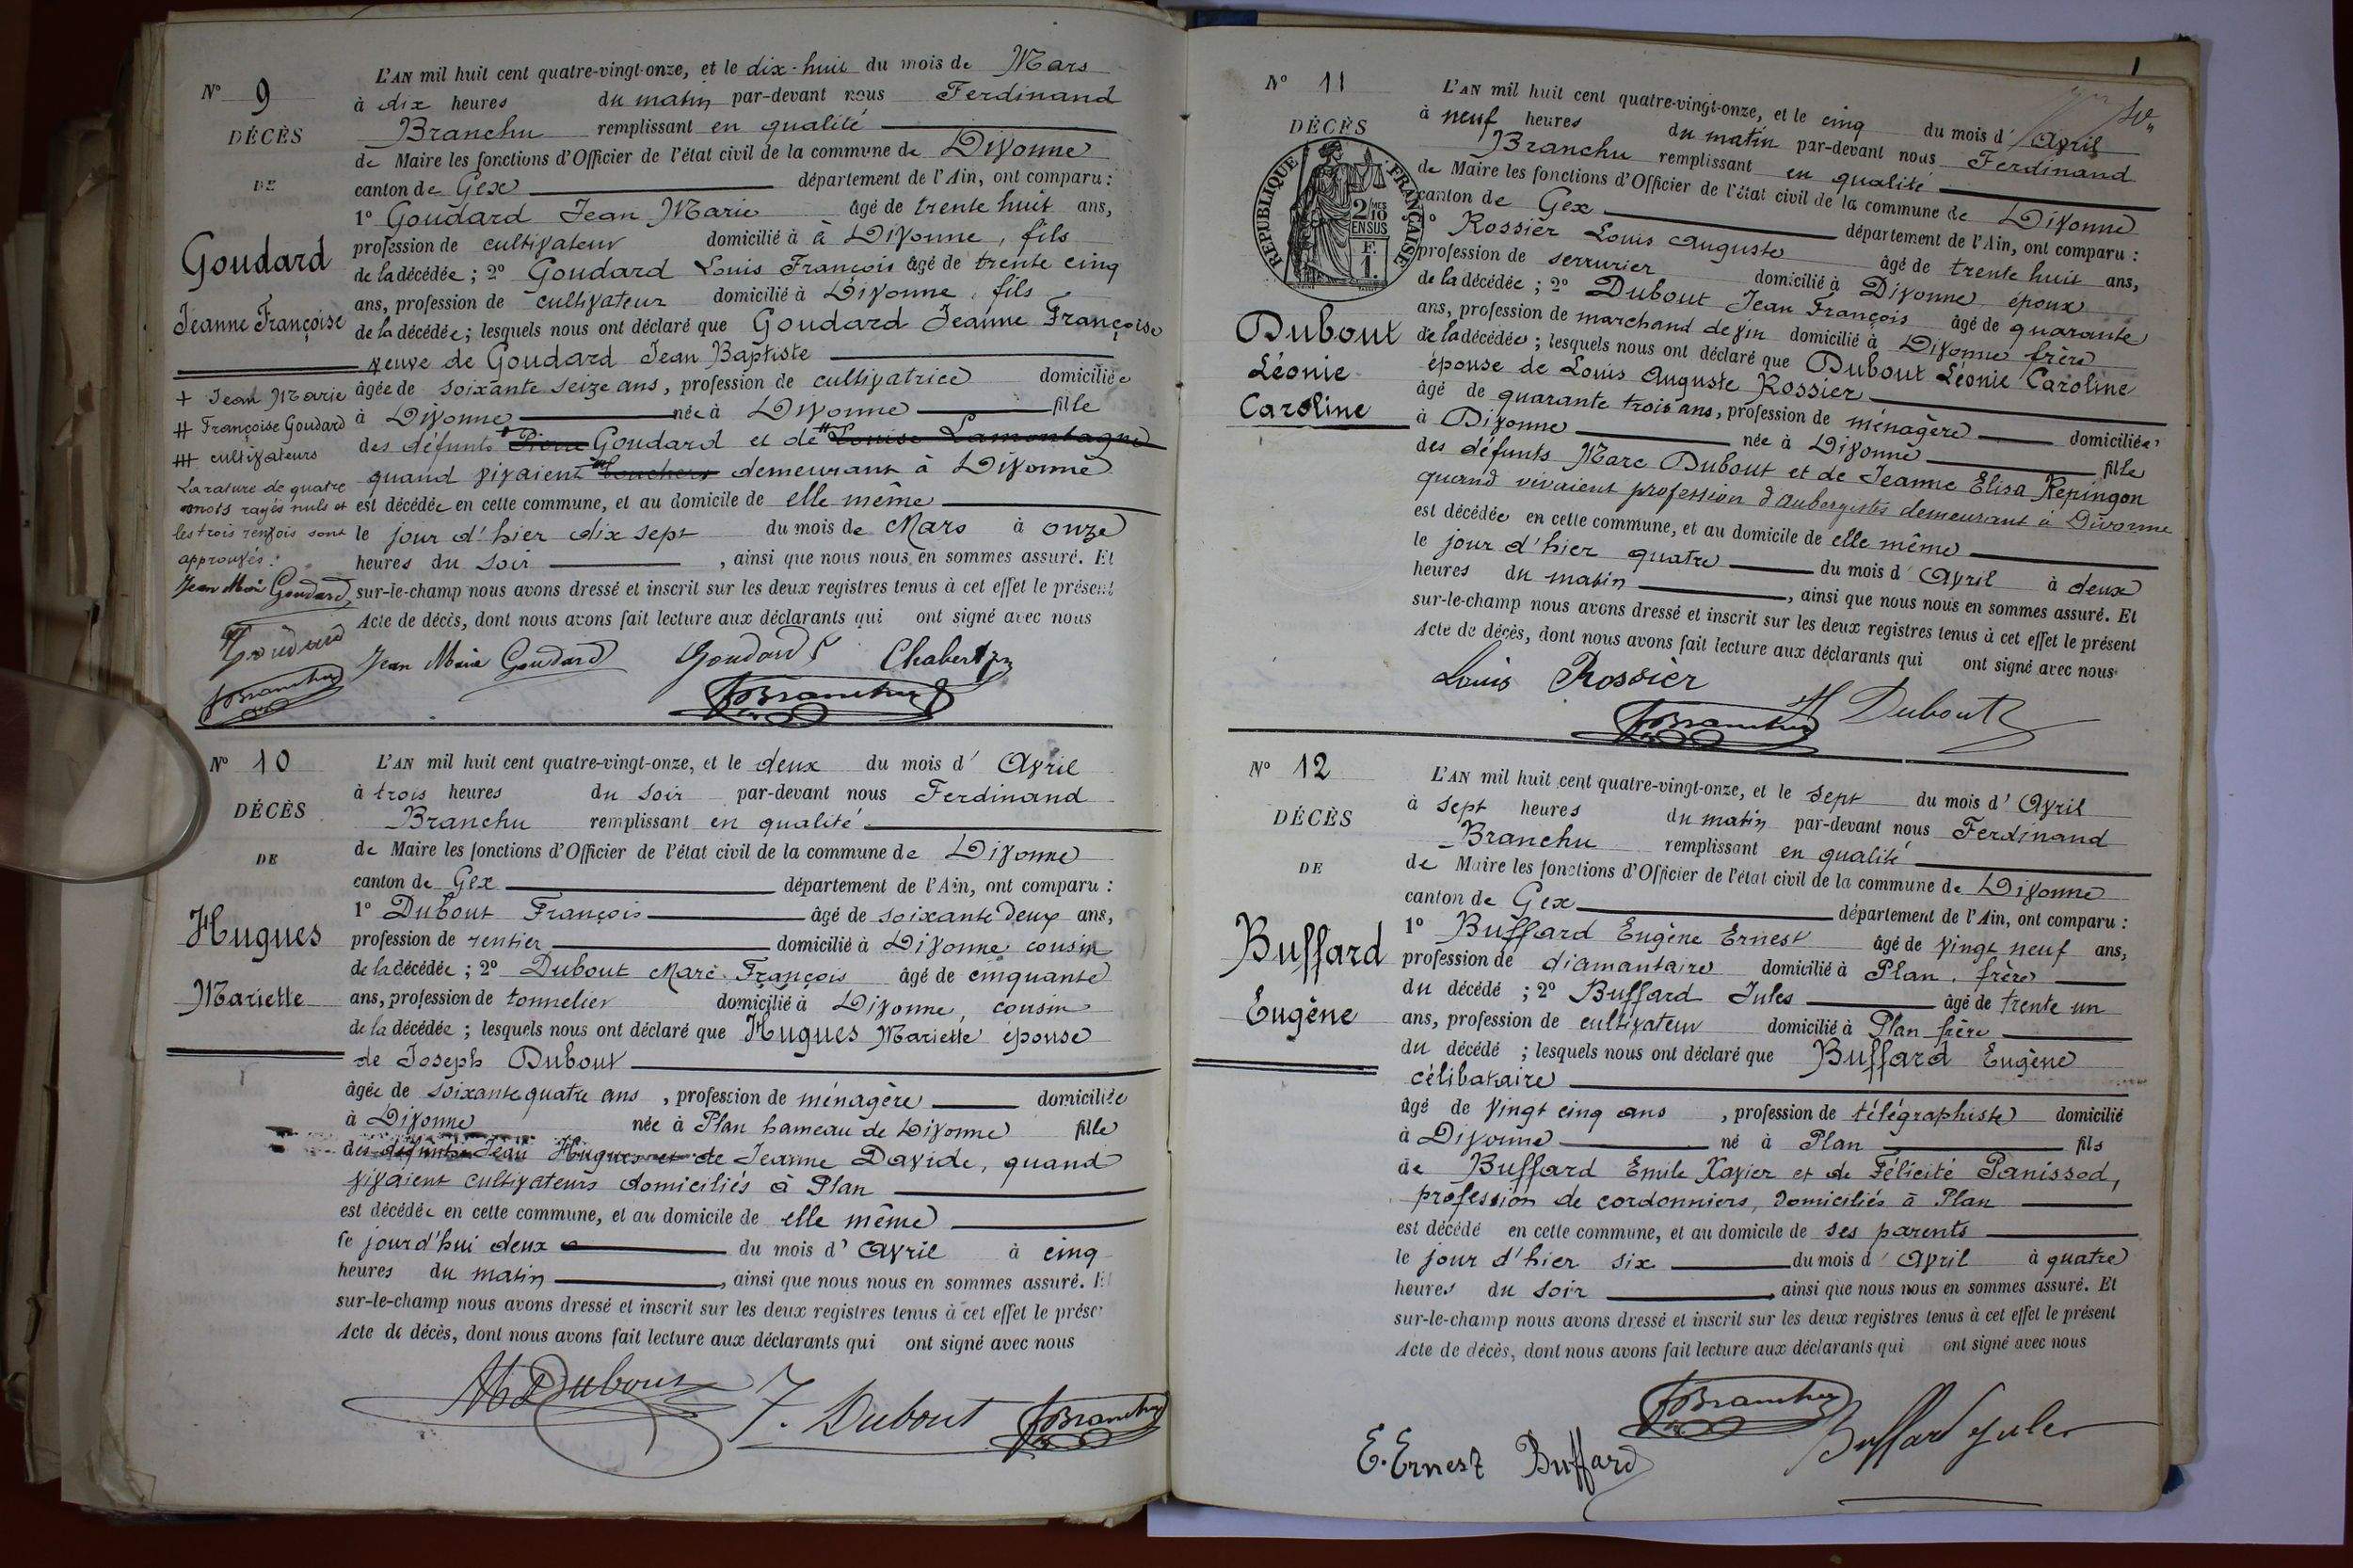 N° 9
DÉCÈS
DE
Goudard
Jeanne Françoise
L'AN mil huit cent quatre-vingt-onze, et le dix-huit du mois de Mars
à dix heures du matin par-devant nous Ferdinand
Branchu remplissant en qualité
de Maire les fonctions d'Officier de l'état civil de la commune de Divonne
canton de Gex département de l'Ain, ont comparu :
1° Goudard Jean Marie âgé de trente huit ans,
profession de cultivateur domicilié à à Divonne, fils
de la décédée ; 2° Goudard Louis François âgé de trente cinq
ans, profession de cultivateur domicilié à Divonne, fils
de la décédée ; lesquels nous ont déclaré que Goudard Jeanne Françoise
veuve de Goudard Jean Baptiste
âgée de soixante seize ans, profession de cultivatrice domiciliée
à Divonne née à Divonne fille
des défunts Pierre Goudard et de Louise Lamontagne
quand vivaient demeurant à Divonne
est décédée en cette commune, et au domicile de elle même
le jour d'hier dix sept du mois de Mars à onze
heures du soir, ainsi que nous nous en sommes assuré. Et
sur-le-champ nous avons dressé et inscrit sur les deux registres tenus à cet effet le présent
Acte de décès, dont nous avons fait lecture aux déclarants qui ont signé avec nous
+ Jean Marie
# Françoise Goudard
cultivateurs
La rature de quatre
mots rayés nuls et
les trois renvois sont
approuvés :
Jean Marie Goudard
Goudard
FBranchu
Jean Marie Goudard Goudard Chabert
FBranchu
N° 10
DÉCÈS
DE
Hugues
Mariette
L'AN mil huit cent quatre-vingt-onze, et le deux du mois d' Avril
à trois heures du soir par-devant nous Ferdinand
Branchu remplissant en qualité
de Maire les fonctions d'Officier de l'état civil de la commune de Divonne
canton de Gex département de l'Ain, ont comparu :
1° Dubout François âgé de soixante deux ans,
profession de rentier domicilié à Divonne cousin
de la décédée ; 2° Dubout Marc François âgé de cinquante
ans, profession de tonnelier domicilié à Divonne, cousin
de la décédée ; lesquels nous ont déclaré que Hugues Mariette épouse
de Joseph Dubout
âgée de soixante quatre ans, profession de ménagère domiciliée
à Divonne née à Plan hameau de Divonne fille
des défunts Jean Hugues et de Jeanne Davide, quand
vivaient cultivateurs domiciliés à Plan
est décédée en cette commune, et au domicile de elle même
le jourd'hui deux du mois d' Avril à cinq
heures du matin, ainsi que nous nous en sommes assuré. Et
sur-le-champ nous avons dressé et inscrit sur les deux registres tenus à cet effet le prése
Acte de décès, dont nous avons fait lecture aux déclarants qui ont signé avec nous
M Dubout F. Dubout FBranchu
N° 11
DÉCÈS
REPUBLIQUE FRANÇAISE
2/10 MES
EN SUS
F.
1.
Dubout
Léonie
Caroline
L'AN mil huit cent quatre-vingt-onze, et le cinq du mois d' Avril
à neuf heures du matin par-devant nous Ferdinand
Branchu remplissant en qualité
de Maire les fonctions d'Officier de l'état civil de la commune de Divonne
canton de Gex département de l'Ain, ont comparu :
° Rossier Louis Auguste âgé de trente huit ans,
profession de serrurier domicilié à Divonne époux
de la décédée ; 2° Dubout Jean François âgé de quarante
ans, profession de marchand de vin domicilié à Divonne frère
de la décédée ; lesquels nous ont déclaré que Dubout Léonie Caroline
épouse de Louis Auguste Rossier
âgé de quarante trois ans, profession de ménagère domiciliée
à Divonne née à Divonne fille
des défunts Marc Dubout et de Jeanne Elisa Repingon
quand vivaient profession d'aubergistes demeurant à Divonne
est décédée en cette commune, et au domicile de elle même
le jour d'hier quatre du mois d' Avril à deux
heures du matin, ainsi que nous nous en sommes assuré. Et
sur-le-champ nous avons dressé et inscrit sur les deux registres tenus à cet effet le présent
Acte de décès, dont nous avons fait lecture aux déclarants qui ont signé avec nous
Louis Rossier Dubout
FBranchu
N° 12
DÉCÈS
DE
Buffard
Eugène
L'AN mil huit cent quatre-vingt-onze, et le sept du mois d' Avril
à sept heures du matin par-devant nous Ferdinand
Branchu remplissant en qualité
de Maire les fonctions d'Officier de l'état civil de la commune de Divonne
canton de Gex département de l'Ain, ont comparu :
1° Buffard Eugène Ernest âgé de vingt neuf ans,
profession de diamantaire domicilié à Plan, frère
du décédé ; 2° Buffard Jules âgé de trente un
ans, profession de cultivateur domicilié à Plan frère
du décédé ; lesquels nous ont déclaré que Buffard Eugène
célibataire
âgé de vingt cinq ans, profession de télégraphiste domicilié
à Divonne né à Plan fils
de Buffard Emile Xavier et de Félicité Panissod,
profession de cordonniers, domiciliés à Plan
est décédé en cette commune, et au domicile de ses parents
le jour d'hier six du mois d' Avril à quatre
heures du soir, ainsi que nous nous en sommes assuré. Et
sur-le-champ nous avons dressé et inscrit sur les deux registres tenus à cet effet le présent
Acte de décès, dont nous avons fait lecture aux déclarants qui ont signé avec nous
FBranchu
E. Ernest Buffard Buffard Jules